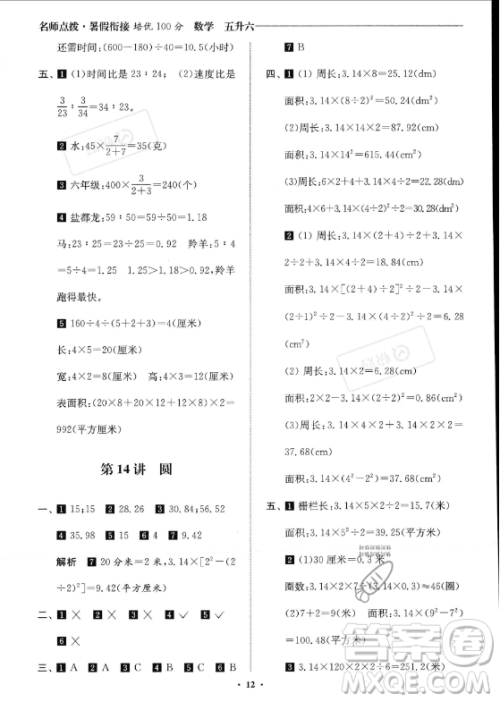 名师点拨·暑假衔接 培优100分 数学 五升六
还需时间:(600-180)÷40=10.5(小时)
五、1 (1)时间比是23∶24; (2)速度比是
3/23∶3/34=34∶23。
2 水:45×7/(2+7)=35(克)
3 六年级:400×3/(2+3)=240(个)
4 盐都龙:59∶50=59÷50=1.18
马:23∶25=23÷25=0.92 羚羊:5∶4
=5÷4=1.25 1.25>1.18>0.92 羚羊
跑得最快。
5 160÷4÷(5+2+3)=4(厘米)
长:4×5=20(厘米)
宽:4×2=8(厘米) 高:4×3=12(厘米)
表面积:(20×8+20×12+12×8)×2=
992(平方厘米)
第14讲 圆
一、1 15;15 2 28.26 3 30.84;56.52
4 35.98 5 15 6 7 7 9.42
解析 7 20分米=2米,3.14×[2²-(2
÷2)²]=9.42(平方厘米)
二、1 × 2 × 3 × 4 × 5 √
6 ×
三、1 A 2 A 3 C 4 B 5 A 6 D
7 B
四、1 (1)周长:3.14×8=25.12(dm)
面积:3.14×(8÷2)²=50.24(dm²)
(2)周长:3.14×14×2=87.92(cm)
面积:3.14×14²=615.44(cm²)
(3)周长:6×2+4+3.14×4÷2=22.28(cm)
面积:4×6+3.14×(4÷2)²÷2=30.28(cm²)
2 (1)周长:3.14×(2+4)÷2+3.14×4
÷2+3.14×2÷2=18.84(cm)
面积:3.14×[(2+4)÷2]²÷2+3.14×
(2÷2)²÷2-3.14×(4÷2)²÷2=6.28
(cm²)
(2)周长:3.14×4×2+3.14×2×2=
37.68(cm)
面积:2×2-3.14×(2÷2)²=0.86(cm²)
(3)周长:3.14×4×2+3.14×2×2=
37.68(cm)
面积:3.14×(4²-2²)=37.68(cm²)
五、1 栅栏长:3.14×5×2÷2=15.7(米)
面积:3.14×5²÷2=39.25(平方米)
2 (1)30厘米=0.3米
圈数:3.14×2×7÷(3.14×0.3)≈46(圈)
(2)面积:3.14×(9²-7²)
=100.48(平方米)
3 3.14×120×2×2÷6=251.2(米)
· 12 ·
答案圈
MXQE.COM